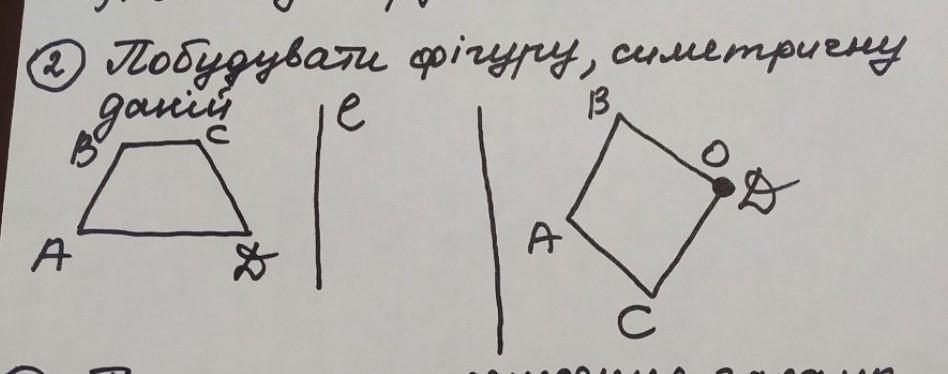 ② Побудувати фігуру, симетричну
даній
B C
A D
ℓ
B
O
A D
C